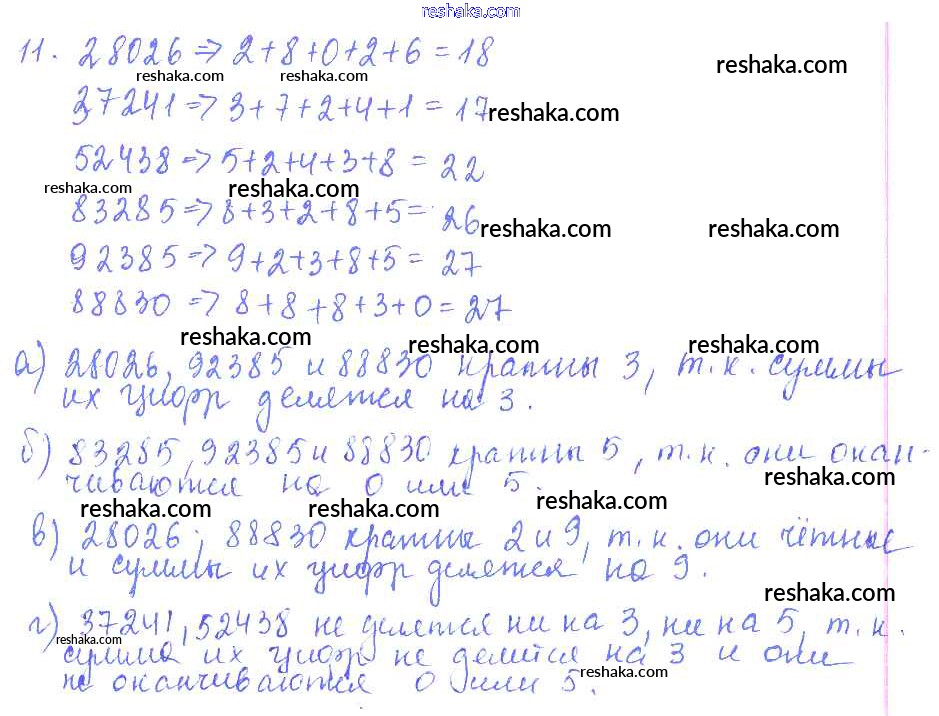 reshaka.com
11. 28026 => 2+8+0+2+6=18
reshaka.com reshaka.com reshaka.com
37241 => 3+7+2+4+1=17
reshaka.com
52438 => 5+2+4+3+8=22
reshaka.com reshaka.com
83285 => 8+3+2+8+5=26
reshaka.com reshaka.com
92385 => 9+2+3+8+5=27
88830 => 8+8+8+3+0=27
reshaka.com reshaka.com reshaka.com
а) 28026, 92385 и 88830 кратны 3, т.к. суммы
их цифр делятся на 3.
б) 83285, 92385 и 88830 кратны 5, т.к. они окан-
reshaka.com
чиваются на 0 или 5.
reshaka.com reshaka.com reshaka.com
в) 28026; 88830 кратны 2 и 9, т.к. они чётные
и суммы их цифр делятся на 9.
reshaka.com
г) 37241, 52438 не делятся ни на 3, ни на 5, т.к.
reshaka.com
сумма их цифр не делится на 3 и они
reshaka.com
не оканчиваются 0 или 5.